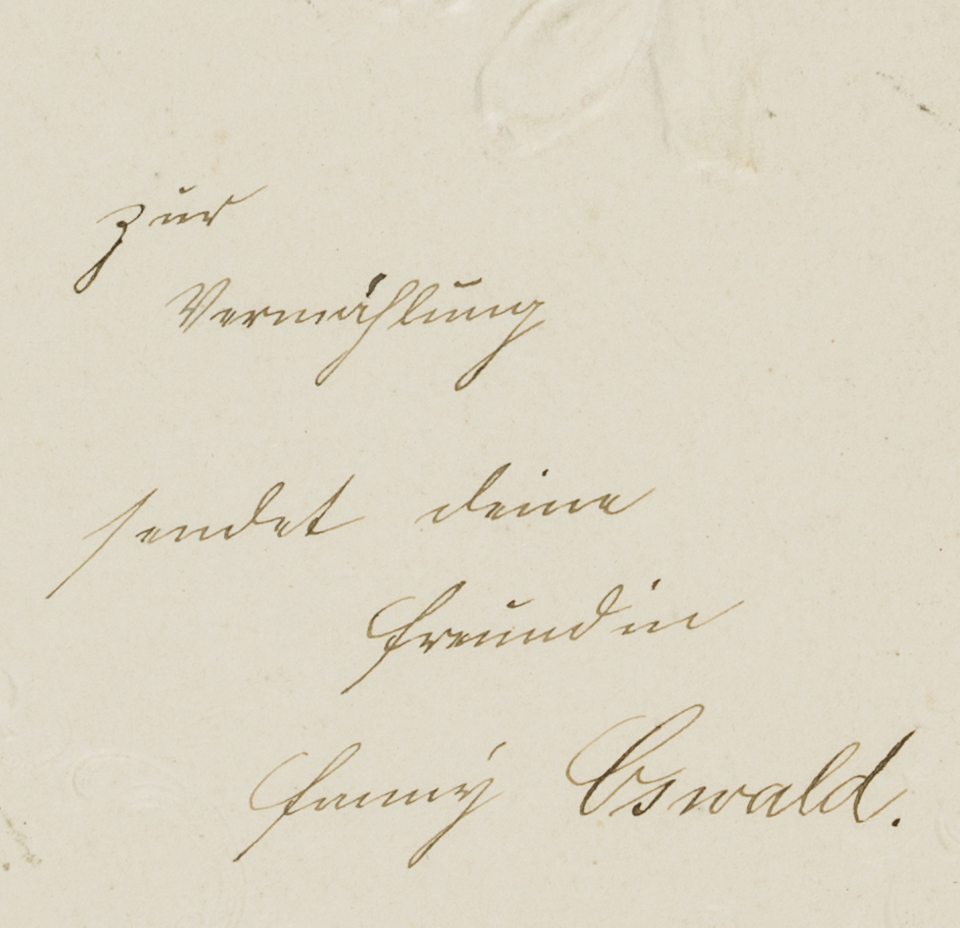 zur
Vermählung
sendet deine
Freundin
Fanny Oswald.